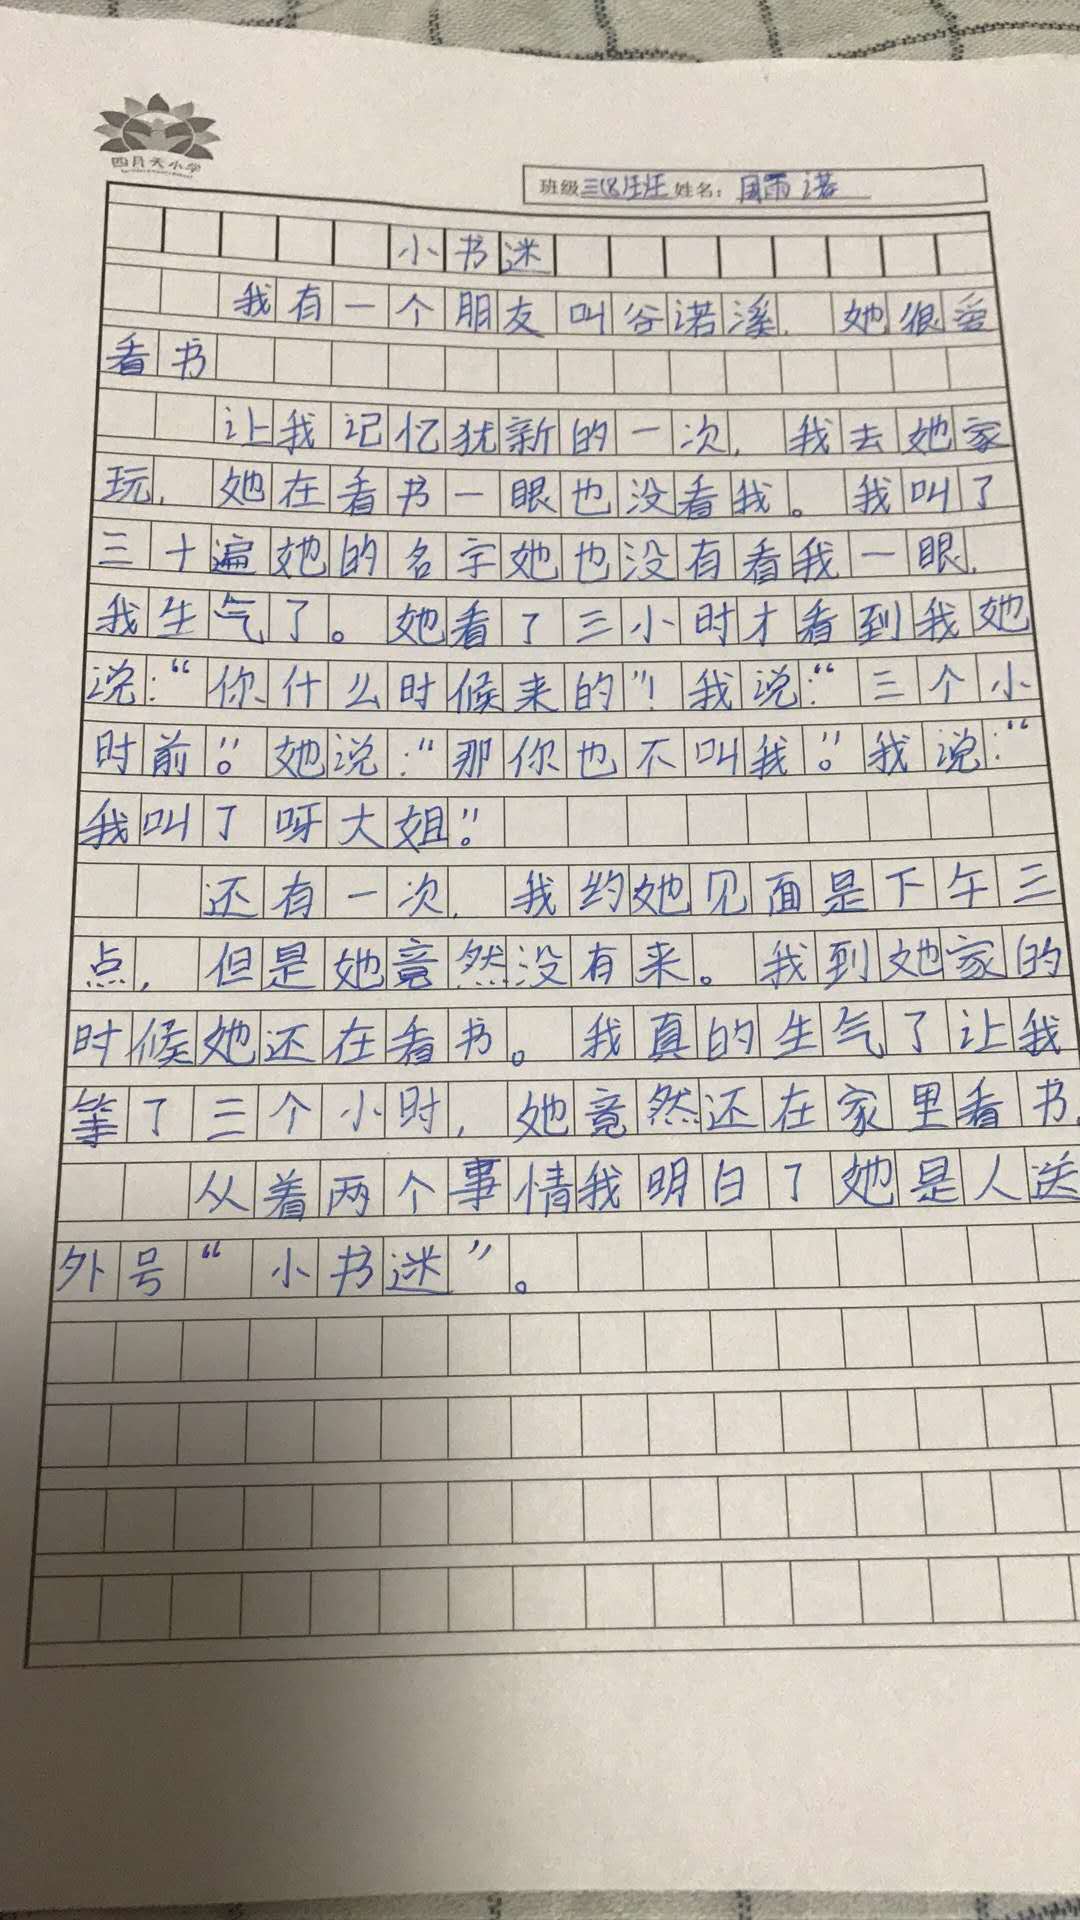 四月天小学
班级 三 姓名: 周雨诺
小书迷
我有一个朋友叫谷诺溪, 她很爱
看书
让我记忆犹新的一次, 我去她家
玩, 她在看书一眼也没看我。我叫了
三十遍她的名字她也没有看我一眼,
我生气了。她看了三小时才看到我她
说:“你什么时候来的”! 我说:“三个小
时前”。她说:“那你也不叫我”。我说:“
我叫了呀大姐”。
还有一次, 我约她见面是下午三
点, 但是她竟然没有来。我到她家的
时候她还在看书。我真的生气了让我
等了三个小时, 她竟然还在家里看书.
从着两个事情我明白了她是人送
外号“小书迷”。